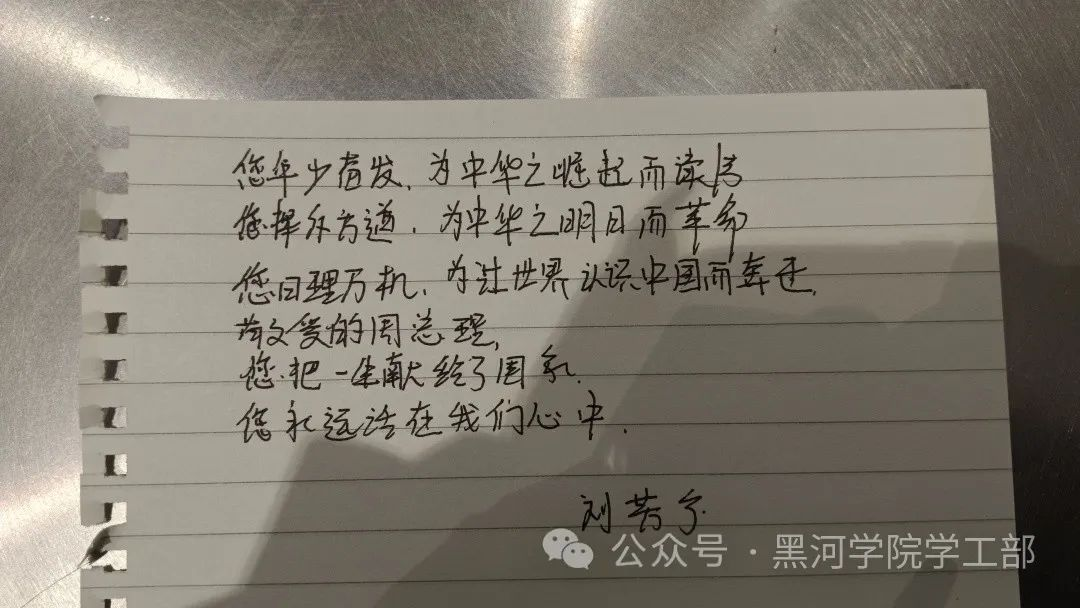 您年少奋发,为中华之崛起而读书
您择外方遒,为中华之明日而革命
您日理万机,为让世界认识中国而奔迁,
敬爱的周总理,
您把一生献给了国家.
您永远活在我们心中.
刘芳
公众号·黑河学院学工部